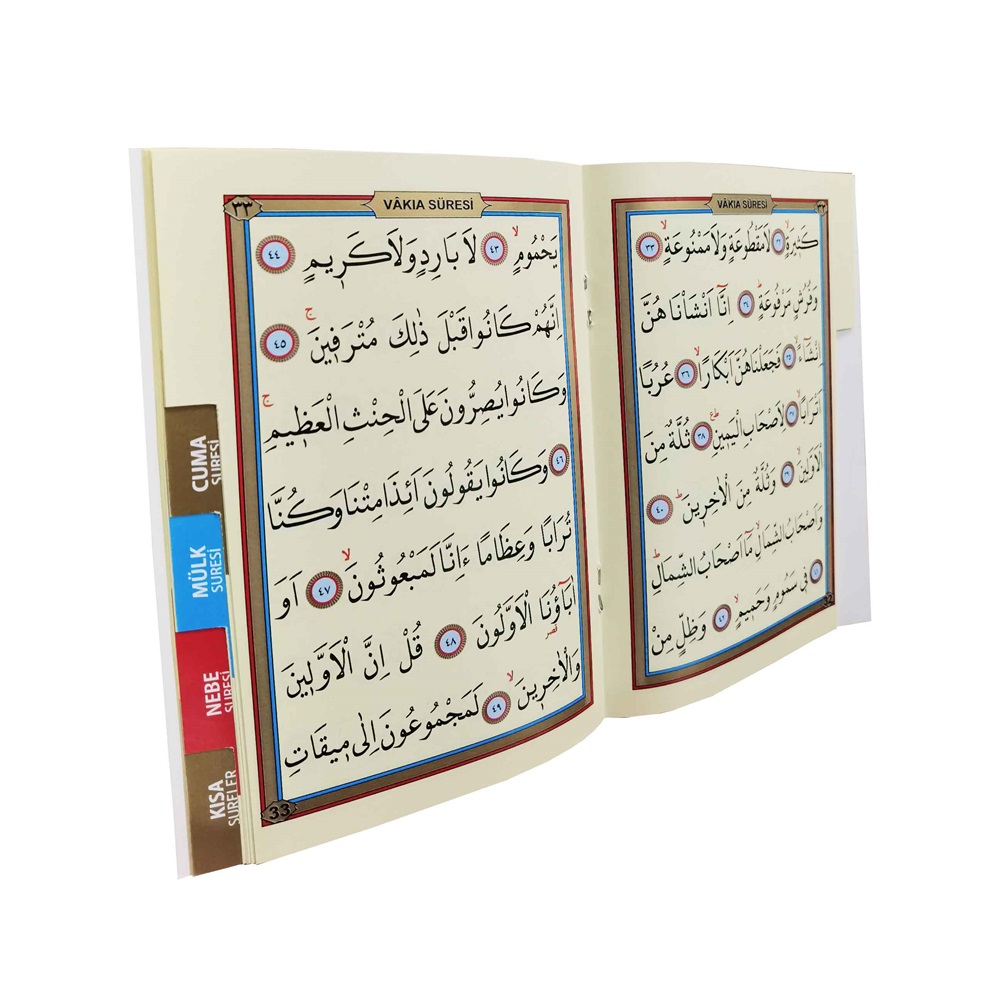 VÂKIA SÛRESİ ٣٢
كَث۪يرَةٍۙ ﴿٣٢﴾ لَا مَقْطُوعَةٍ وَلَا مَمْنُوعَةٍۙ ﴿٣٣﴾
وَفُرُشٍ مَرْفُوعَةٍۜ ﴿٣٤﴾ اِنَّٓا اَنْشَأْنَاهُنَّ
اِنْشَٓاءًۙ ﴿٣٥﴾ فَجَعَلْنَاهُنَّ اَبْكَارًاۙ ﴿٣٦﴾ عُرُبًا
اَتْرَابًاۙ ﴿٣٧﴾ لِاَصْحَابِ الْيَم۪ينِۜ ﴿٣٨﴾ ثُلَّةٌ مِنَ
الْاَوَّل۪ينَۙ ﴿٣٩﴾ وَثُلَّةٌ مِنَ الْاٰخِر۪ينَۜ ﴿٤٠﴾
وَاَصْحَابُ الشِّمَالِۙ مَٓا اَصْحَابُ الشِّمَالِۜ
﴿٤١﴾ ف۪ي سَمُومٍ وَحَم۪يمٍۙ ﴿٤٢﴾ وَظِلٍّ مِنْ
32
٣٣ VÂKIA SÛRESİ
يَحْمُومٍۙ ﴿٤٣﴾ لَا بَارِدٍ وَلَا كَر۪يمٍ ﴿٤٤﴾
اِنَّهُمْ كَانُوا قَبْلَ ذٰلِكَ مُتْرَف۪ينَۚ ﴿٤٥﴾
وَكَانُوا يُصِرُّونَ عَلَى الْحِنْثِ الْعَظ۪يمِۚ
﴿٤٦﴾ وَكَانُوا يَقُولُونَ اَئِذَا مِتْنَا وَكُنَّا
تُرَابًا وَعِظَامًا ءَاِنَّا لَمَبْعُوثُونَۙ ﴿٤٧﴾ اَوَ
اٰبَٓاؤُ۬نَا الْاَوَّلُونَ ﴿٤٨﴾ قُلْ اِنَّ الْاَوَّل۪ينَ
وَالْاٰخِر۪ينَۙ ﴿٤٩﴾ لَمَجْمُوعُونَ اِلٰى م۪يقَاتِ
33
CUMA
SURESİ
MÜLK
SURESİ
NEBE
SURESİ
KISA
SURELER